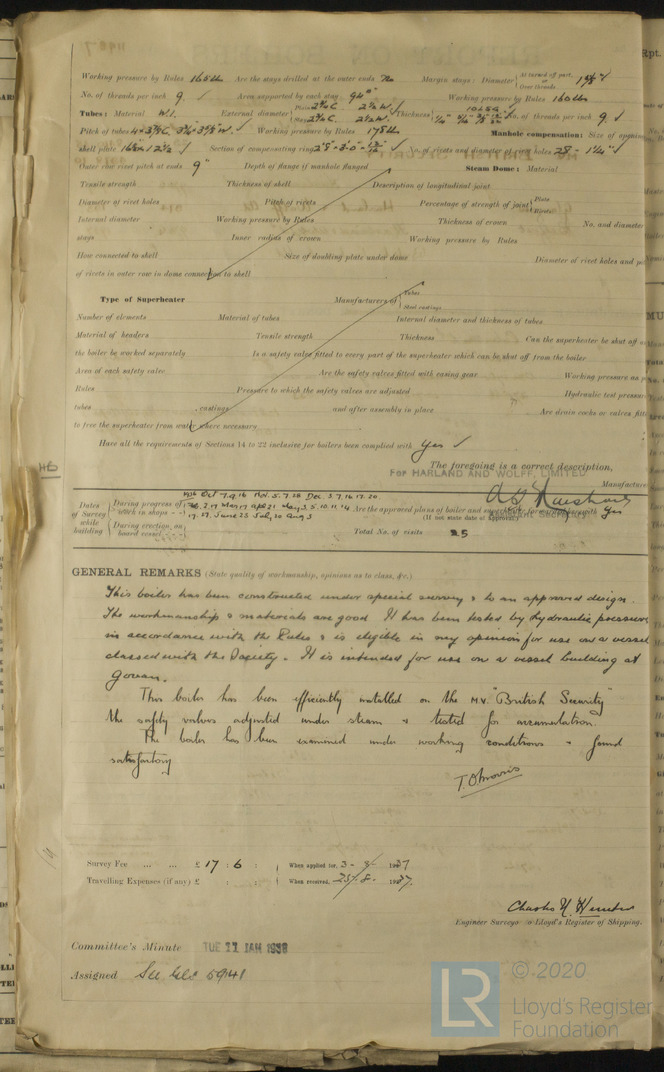 Working pressure by Rules 165 lb Are the stays drilled at the outer ends No Margin stays: Diameter { At turned off part, or Over threads
No. of threads per inch 9 ✓ Area supported by each stay Working pressure by Rules 160 lb
Tubes: Material W.I. External diameter { Plain 2¾ C 2½ W. ✓ Thickness { No. of threads per inch 9 ✓
Pitch of tubes Working pressure by Rules 175 lb Manhole compensation: Size of
shell plate ✓ Section of compensating ring No. of rivets and diameter of rivet holes 28 - 1¼" ✓
Outer row rivet pitch at ends 9" Depth of flange if manhole flanged Steam Dome: Material
Tensile strength Thickness of shell Description of longitudinal joint
Diameter of rivet holes Pitch of rivets Percentage of strength of joint { Plate Rivets
Internal diameter Working pressure by Rules Thickness of crown No. and diameter
stays Inner radius of crown Working pressure by Rules
How connected to shell Size of doubling plate under dome Diameter of rivet holes and
of rivets in outer row in dome connection to shell
Type of Superheater Manufacturers of { Tubes Steel castings
Number of elements Material of tubes Internal diameter and thickness of tubes
Material of headers Tensile strength Thickness Can the superheater be shut off
the boiler be worked separately Is a safety valve fitted to every part of the superheater which can be shut off from the boiler
Area of each safety valve Are the safety valves fitted with easing gear Working pressure as
Rules Pressure to which the safety valves are adjusted Hydraulic test pressure
tubes , castings and after assembly in place Are drain cocks or valves
to free the superheater from water where necessary
Have all the requirements of Sections 14 to 22 inclusive for boilers been complied with Yes ✓
The foregoing is a correct description,
FOR HARLAND AND WOLFF, LIMITED
Manufacturer
ASSISTANT SECRETARY
Dates of Survey while building { During progress of work in shops - - 1936 Oct 7.9.16 Nov. 5.7.28 Dec. 3.7.16.17.20
Are the approved plans of boiler and superheater forwarded herewith Yes
(If not state date of approval.)
17. 27. June 25 July 20 Aug 3
During erection on board vessel - - - Total No. of visits 25
GENERAL REMARKS (State quality of workmanship, opinions as to class, &c.)
This boiler has been constructed under special survey & to an approved design.
The workmanship & materials are good It has been tested by hydraulic pressure
in accordance with the Rules & is eligible in my opinion for use on a vessel
classed with the Society. It is intended for use on a vessel building at
Govan.
This boiler has been efficiently installed on the M.V. "British Security"
the safety valves adjusted under steam & tested for accumulation.
The boiler has been examined under working conditions & found
satisfactory
T. O. Morris
Survey Fee ... ... £ 17 : 6 : When applied for, 3 - 8 - 1937
Travelling Expenses (if any) £ : : When received, 25 - 8 - 1937.
Charles H. Hunter
Engineer Surveyor to Lloyd's Register of Shipping.
Committee's Minute TUE 11 JAN 1938
Assigned See Glc 5941
LR © 2020
Lloyd's Register
Foundation